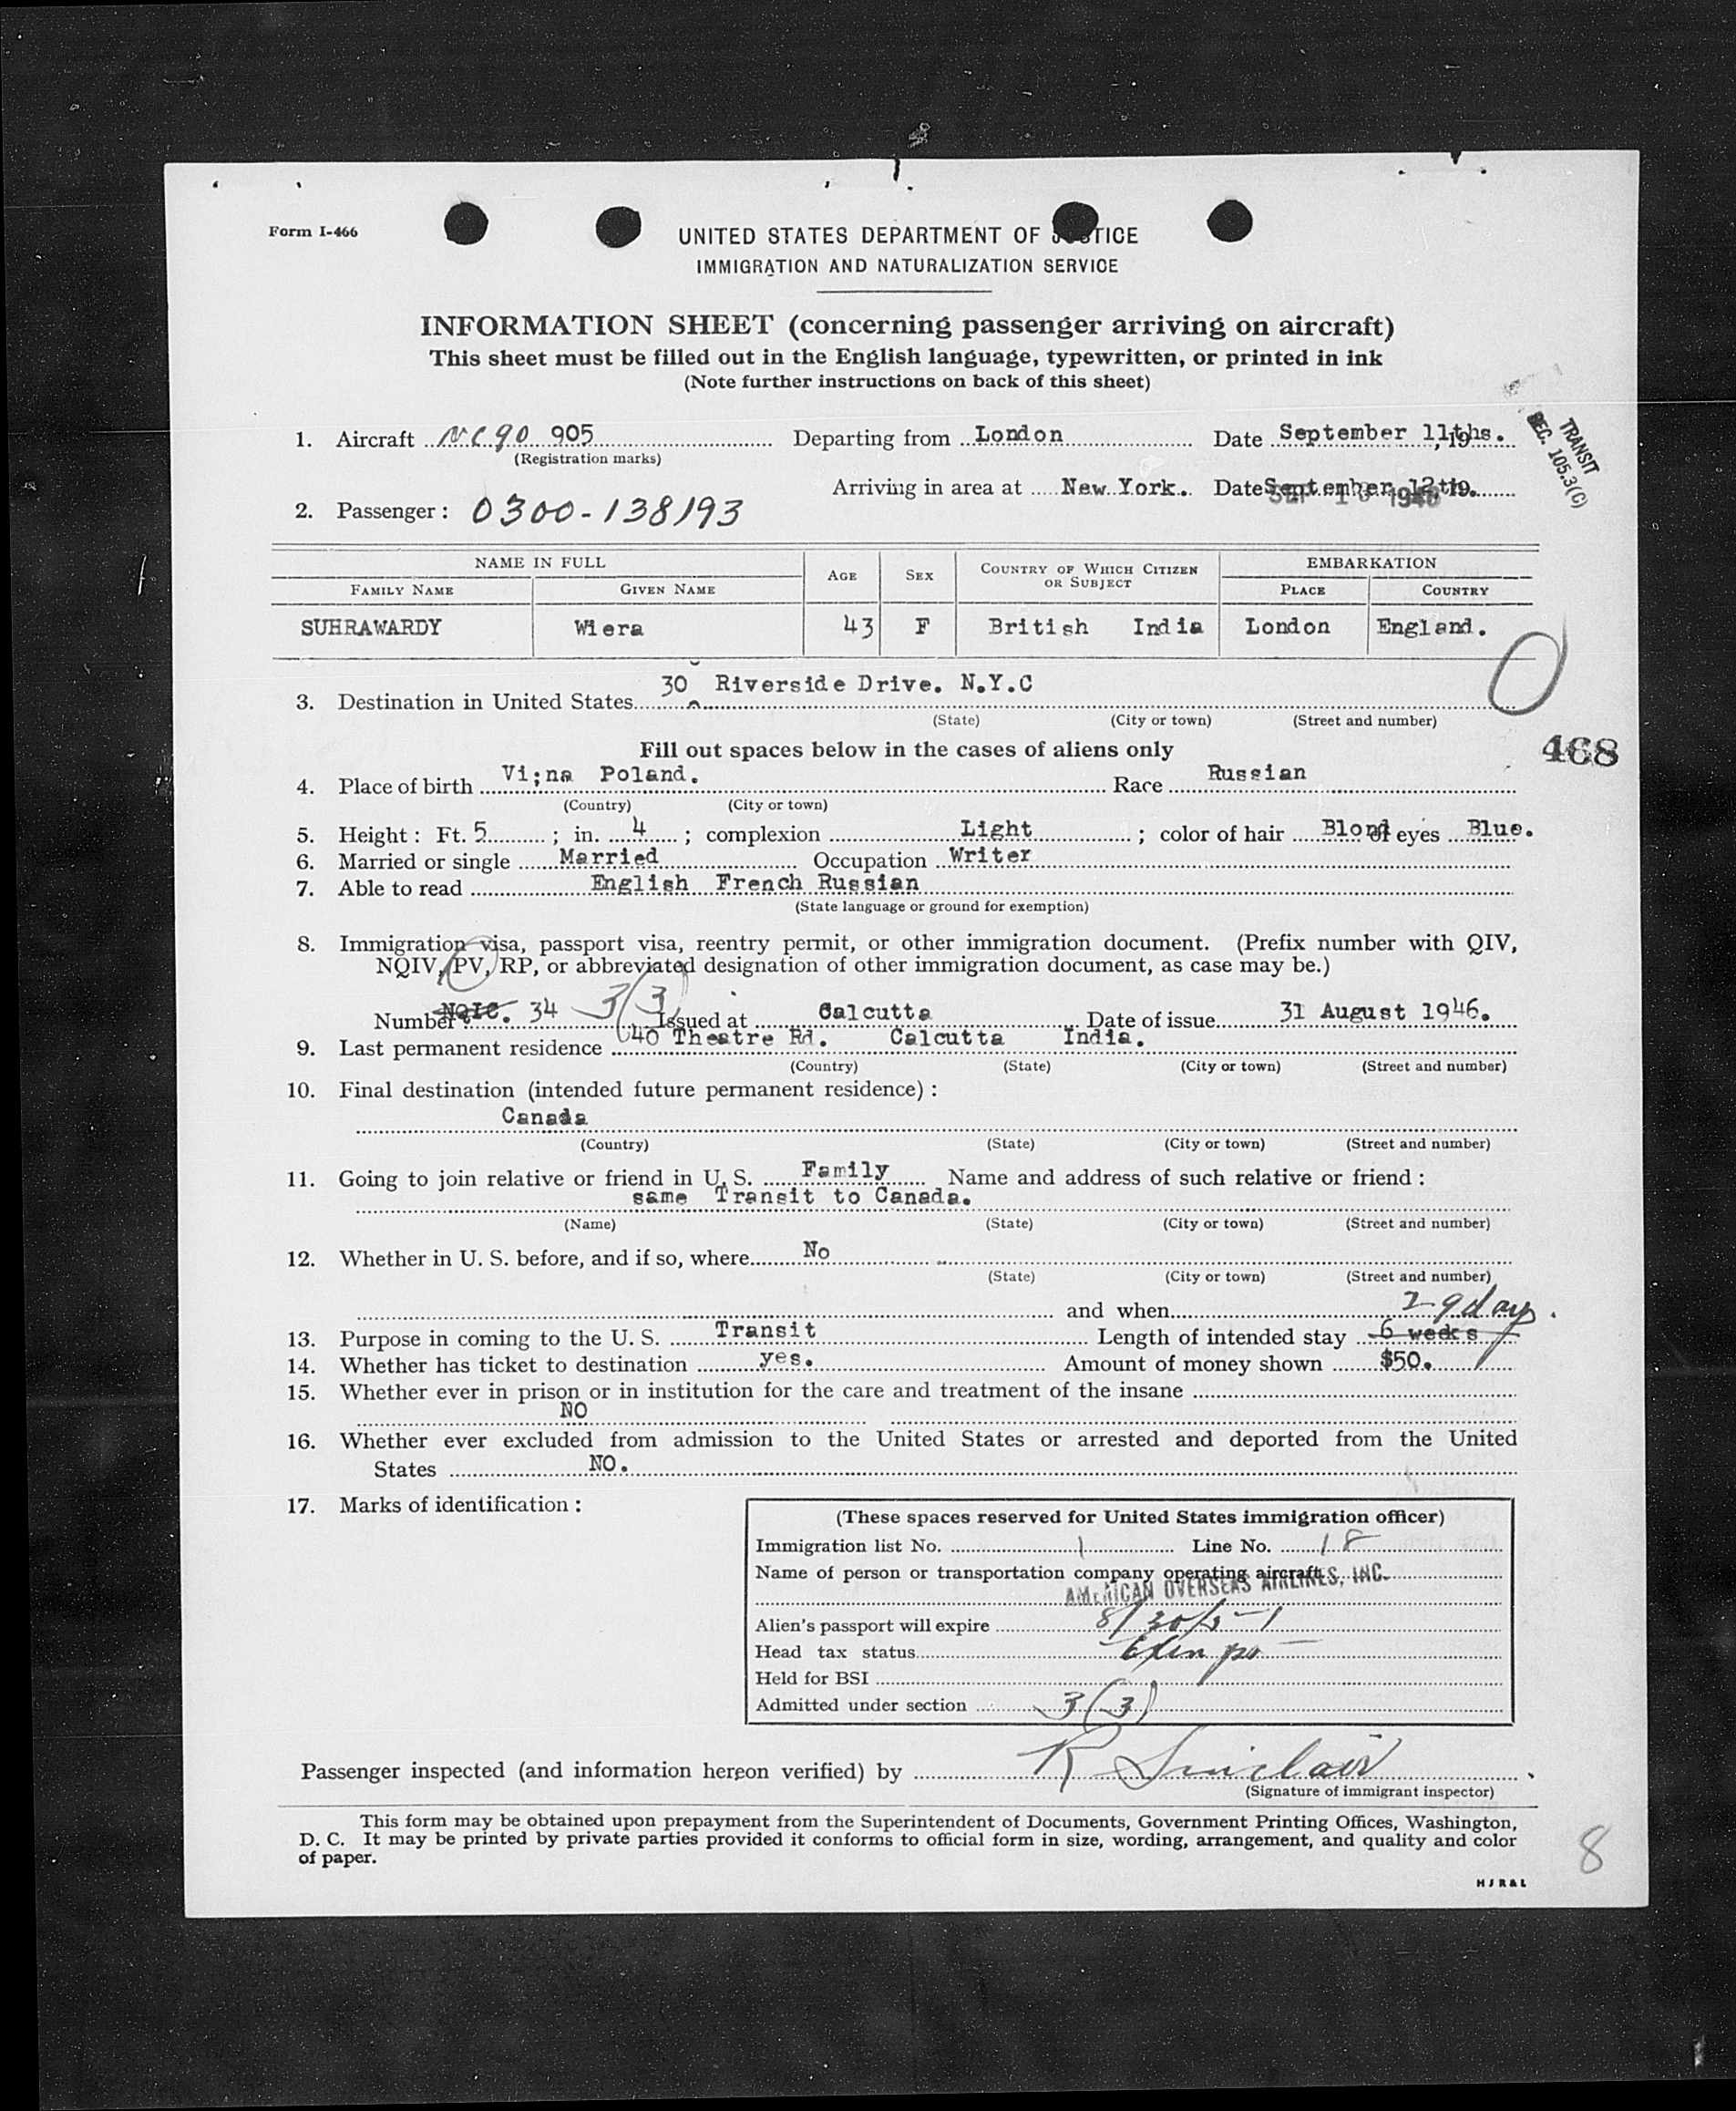 Form I-466
UNITED STATES DEPARTMENT OF JUSTICE
IMMIGRATION AND NATURALIZATION SERVICE
INFORMATION SHEET (concerning passenger arriving on aircraft)
This sheet must be filled out in the English language, typewritten, or printed in ink
(Note further instructions on back of this sheet)
1. Aircraft NC 90 905 Departing from London Date September 11ths. , 19
(Registration marks)
TRANSIT
SEC. 105.3(C)
Arriving in area at New York. Date September 12th. 19
SEP 13 1946
2. Passenger: 0300-138193
NAME IN FULL AGE SEX COUNTRY OF WHICH CITIZEN OR SUBJECT EMBARKATION
FAMILY NAME GIVEN NAME PLACE COUNTRY
SUHRAWARDY Wiera 43 F British India London England.
0
3. Destination in United States 30 Riverside Drive. N.Y.C
(State) (City or town) (Street and number)
Fill out spaces below in the cases of aliens only
468
4. Place of birth Vi;na Poland. Race Russian
(Country) (City or town)
5. Height: Ft. 5 ; in. 4 ; complexion Light ; color of hair Blond of eyes Blue.
6. Married or single Married Occupation Writer
7. Able to read English French Russian
(State language or ground for exemption)
8. Immigration visa, passport visa, reentry permit, or other immigration document. (Prefix number with QIV,
NQIV, PV, RP, or abbreviated designation of other immigration document, as case may be.)
Number NQIC. 34 3(3) Issued at Calcutta Date of issue 31 August 1946.
9. Last permanent residence 40 Theatre Rd. Calcutta India.
(Country) (State) (City or town) (Street and number)
10. Final destination (intended future permanent residence):
Canada
(Country) (State) (City or town) (Street and number)
11. Going to join relative or friend in U. S. Family Name and address of such relative or friend:
same Transit to Canada.
(Name) (State) (City or town) (Street and number)
12. Whether in U. S. before, and if so, where No
(State) (City or town) (Street and number)
and when
29 days
13. Purpose in coming to the U. S. Transit Length of intended stay 6 weeks
14. Whether has ticket to destination yes. Amount of money shown $50.
15. Whether ever in prison or in institution for the care and treatment of the insane
NO
16. Whether ever excluded from admission to the United States or arrested and deported from the United
States NO.
17. Marks of identification:
(These spaces reserved for United States immigration officer)
Immigration list No. 1 Line No. 18
Name of person or transportation company operating aircraft
AMERICAN OVERSEAS AIRLINES, INC.
Alien's passport will expire 8/30/51
Head tax status
Held for BSI
Admitted under section 3(3)
Passenger inspected (and information hereon verified) by R Sinclair
(Signature of immigrant inspector)
This form may be obtained upon prepayment from the Superintendent of Documents, Government Printing Offices, Washington,
D. C. It may be printed by private parties provided it conforms to official form in size, wording, arrangement, and quality and color
of paper.
8
HJR&L